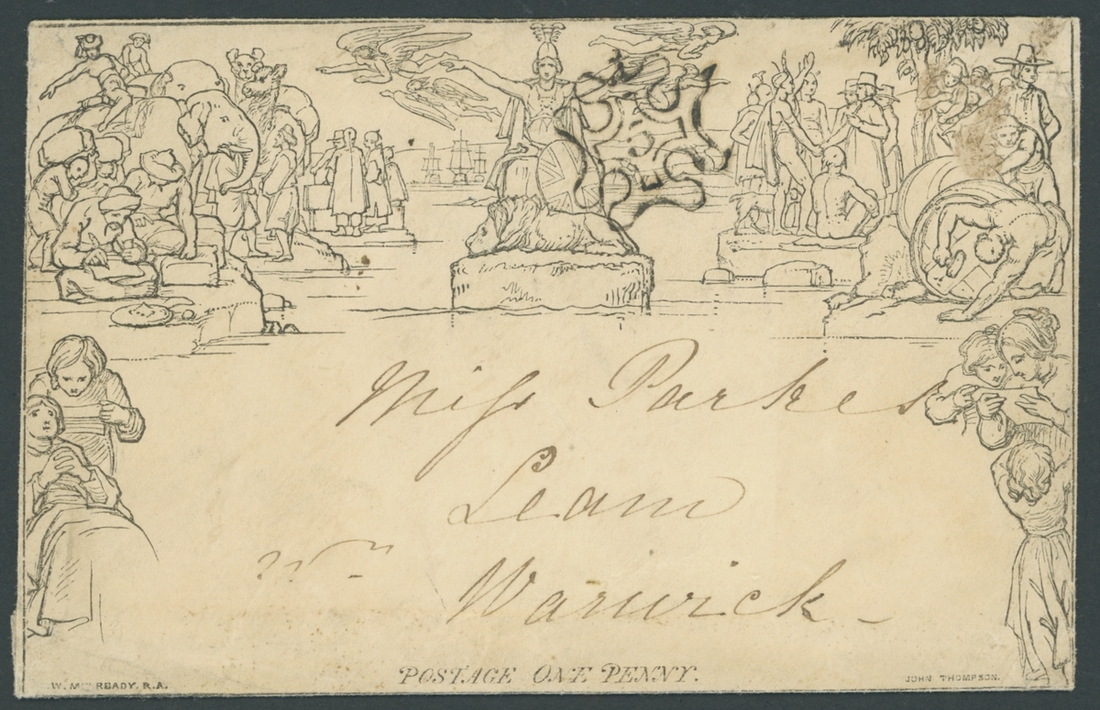 Miss Parkes
Leam
nr
Warwick
POSTAGE ONE PENNY.
W. MULREADY. R.A.
JOHN THOMPSON.